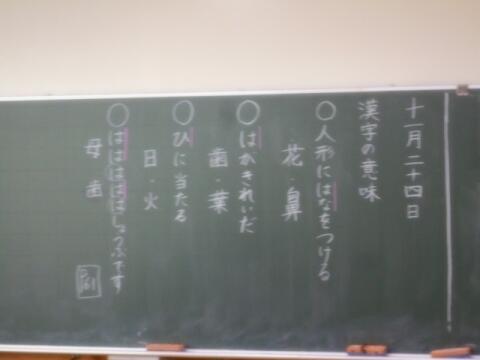 十一月二十四日
漢字の意味
○人形にはなをつける
花・鼻
○はがきれいだ
歯・葉
○ひに当たる
日・火
○はははははじょうぶです
母 歯
P.61